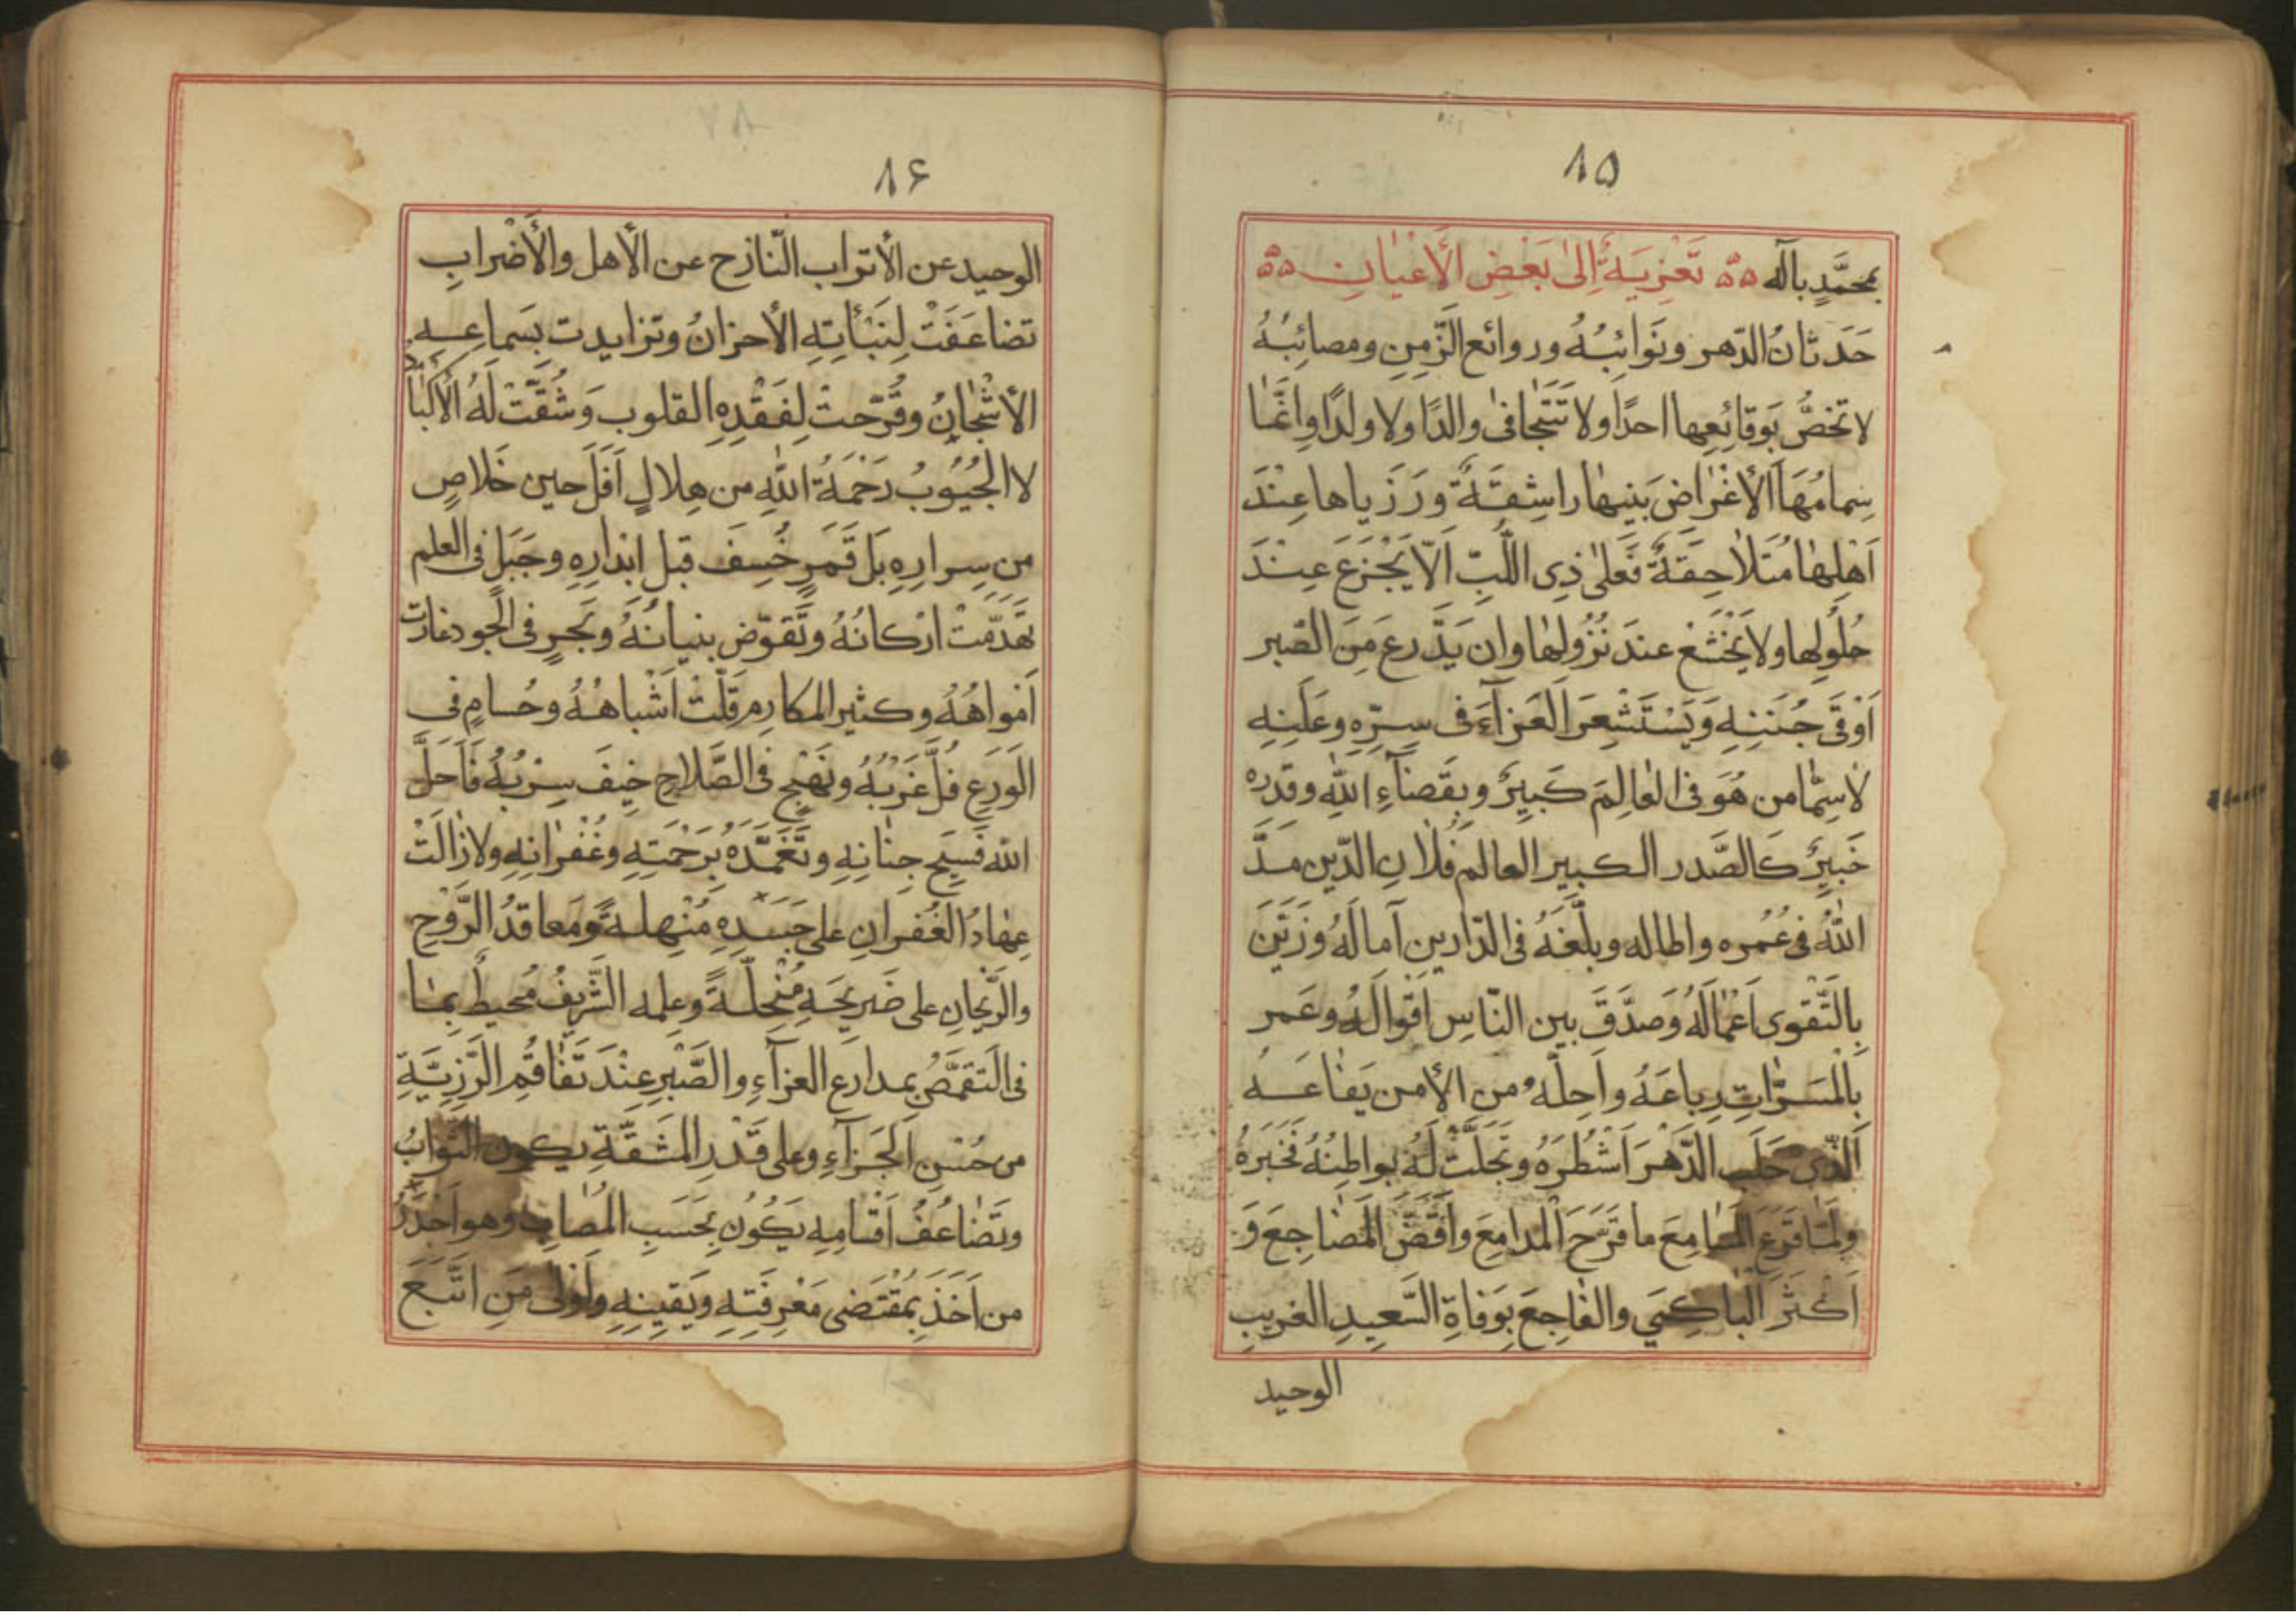 ۸۵
بمحمَّدٍ بآله ۵۵ تَعْزِيَةٌ إلى بَعْضِ الأَعْيَانِ ۵۵
حَدَثانُ الدّهر ونَوائِبُهُ وروائع الزّمنِ ومصائِبُهُ
لا تخصُّ بوَقائِعِها احدًا ولا تَتَجافىٰ والدًا ولا ولدًا وانَّما
سِهامُهَا الأغْراضِ بَنِيهٰا راشِقَةٌ ورَزَياها عِنْدَ
اَهْلِهٰا مُتَلاٰحِقَةٌ فَعَلىٰ ذِى اللُّبِّ اَلّا يَجْزَعَ عِنْدَ
حُلُولِها ولا يَخْشَعْ عندَ نُزُولِهٰا وان يَدَّرِعَ مِنَ الصّبر
اَوْقىٰ جُنَنِهِ وَيَسْتَشْعِرَ العَزآءَ فى سِرِّهِ وعَلَنِهِ
لاٰسِيَّما من هُوَ فى العٰالِمَ كَبِيرٌ وبِقَضآءِ اللّٰهِ وقدره
خَبِيرٌ كَالصَّدر الكبير العالم فُلانِ الدّين مدَّ
اللّٰهُ فى عُمُره واطاله وبلَّغَهُ فى الدّارين آمالَهُ وزَيَّنَ
بِالتَّقوى اَعْمٰالَهُ وَصَدَّقَ بين النّاسِ اَقْوالَهُ وعَمر
بِالْمَسَرّٰاتِ رِباعَهُ واَحِلَّهُ من الأمن يَفٰاعَهُ
اَلّذى حَلَبَ الدّهْرَ اَشْطُرَهُ وتَجَلَّتْ لَهُ بواطِنُهُ فَخَبَرهُ
ولَمّا قَرَعَ المَسٰامِعَ ما قَرَّحَ الْمَدامِعَ واَقَضَّ الْمَضٰاجِعَ وَ
اَكْثَرَ البٰاكِىَ والفٰاجِعَ بوَفاةِ السَّعِيدِ الغريبِ
الوحيد
۸۶
الوحيد عن الأتراب النّازح عن الأهل والأَضْرابِ
تضاعَفَتْ لِنَبْأتِهِ الأحزانُ وتزايدت بِسَماعِهِ
الأشْجٰانُ وقُرّحتْ لِفَقْدِهِ القلوب وَشُقَّتْ لَهُ الأكْبٰادُ
لا الجُيُوبُ رَحْمَةُ اللّٰهِ من هِلالٍ اَفَلَ حين خَلاصٍ
مِن سِرارِهِ بَل قَمَرٍ خُسِفَ قبل اِبْدارِهِ وجَبَلٍ فى العلم
تَهَدّمتْ اركانُهُ وتَقوّض بنيانُهُ وبَحرٍ فى الجود غارت
اَمْواهُهُ وكثيرِ المكارِمِ قَلّتْ اَشْباهُهُ وحُسامٍ فى
الوَرَعِ فُلَّ غَرْبُهُ ونَهْجٍ فى الصَّلاحِ خِيفَ سِرْبُهُ فَاَحَلَّ
اللّٰه فَسِيح جِنٰانِهِ وتَغَمَّدَهُ بِرَحْمَتِهِ وغُفْرٰانِهِ ولا زٰالَتْ
عِهٰادُ الغُفرانِ على جَسَدِهِ مُنْهلةً ومَعاقدُ الرَّوْحِ
والرَّيْحٰانِ على ضَرِيحَهِ مُنْحَلّةً وعلمه الشّرِيفُ مُحيطٌ بِمٰا
فى التَقَمُّصُ بمدارِع العزآءِ والصَّبْرِ عِنْدَ تَفٰاقُمِ الرَّزِيَّةِ
من حُسْنِ الجَزآءِ وعلى قَدْرِ المَشَقَّةِ يكون الثّوابُ
وتَضٰاعُفُ اَقْسامِهِ يَكُونُ بِحَسَبِ المُصابِ وهو اَجْدَرُ
من اَخَذَ بِمُقْتَضى مَعْرِفَتِهِ ويَقِينِهِ واَوْلىٰ مَنِ اتَّبَعَ